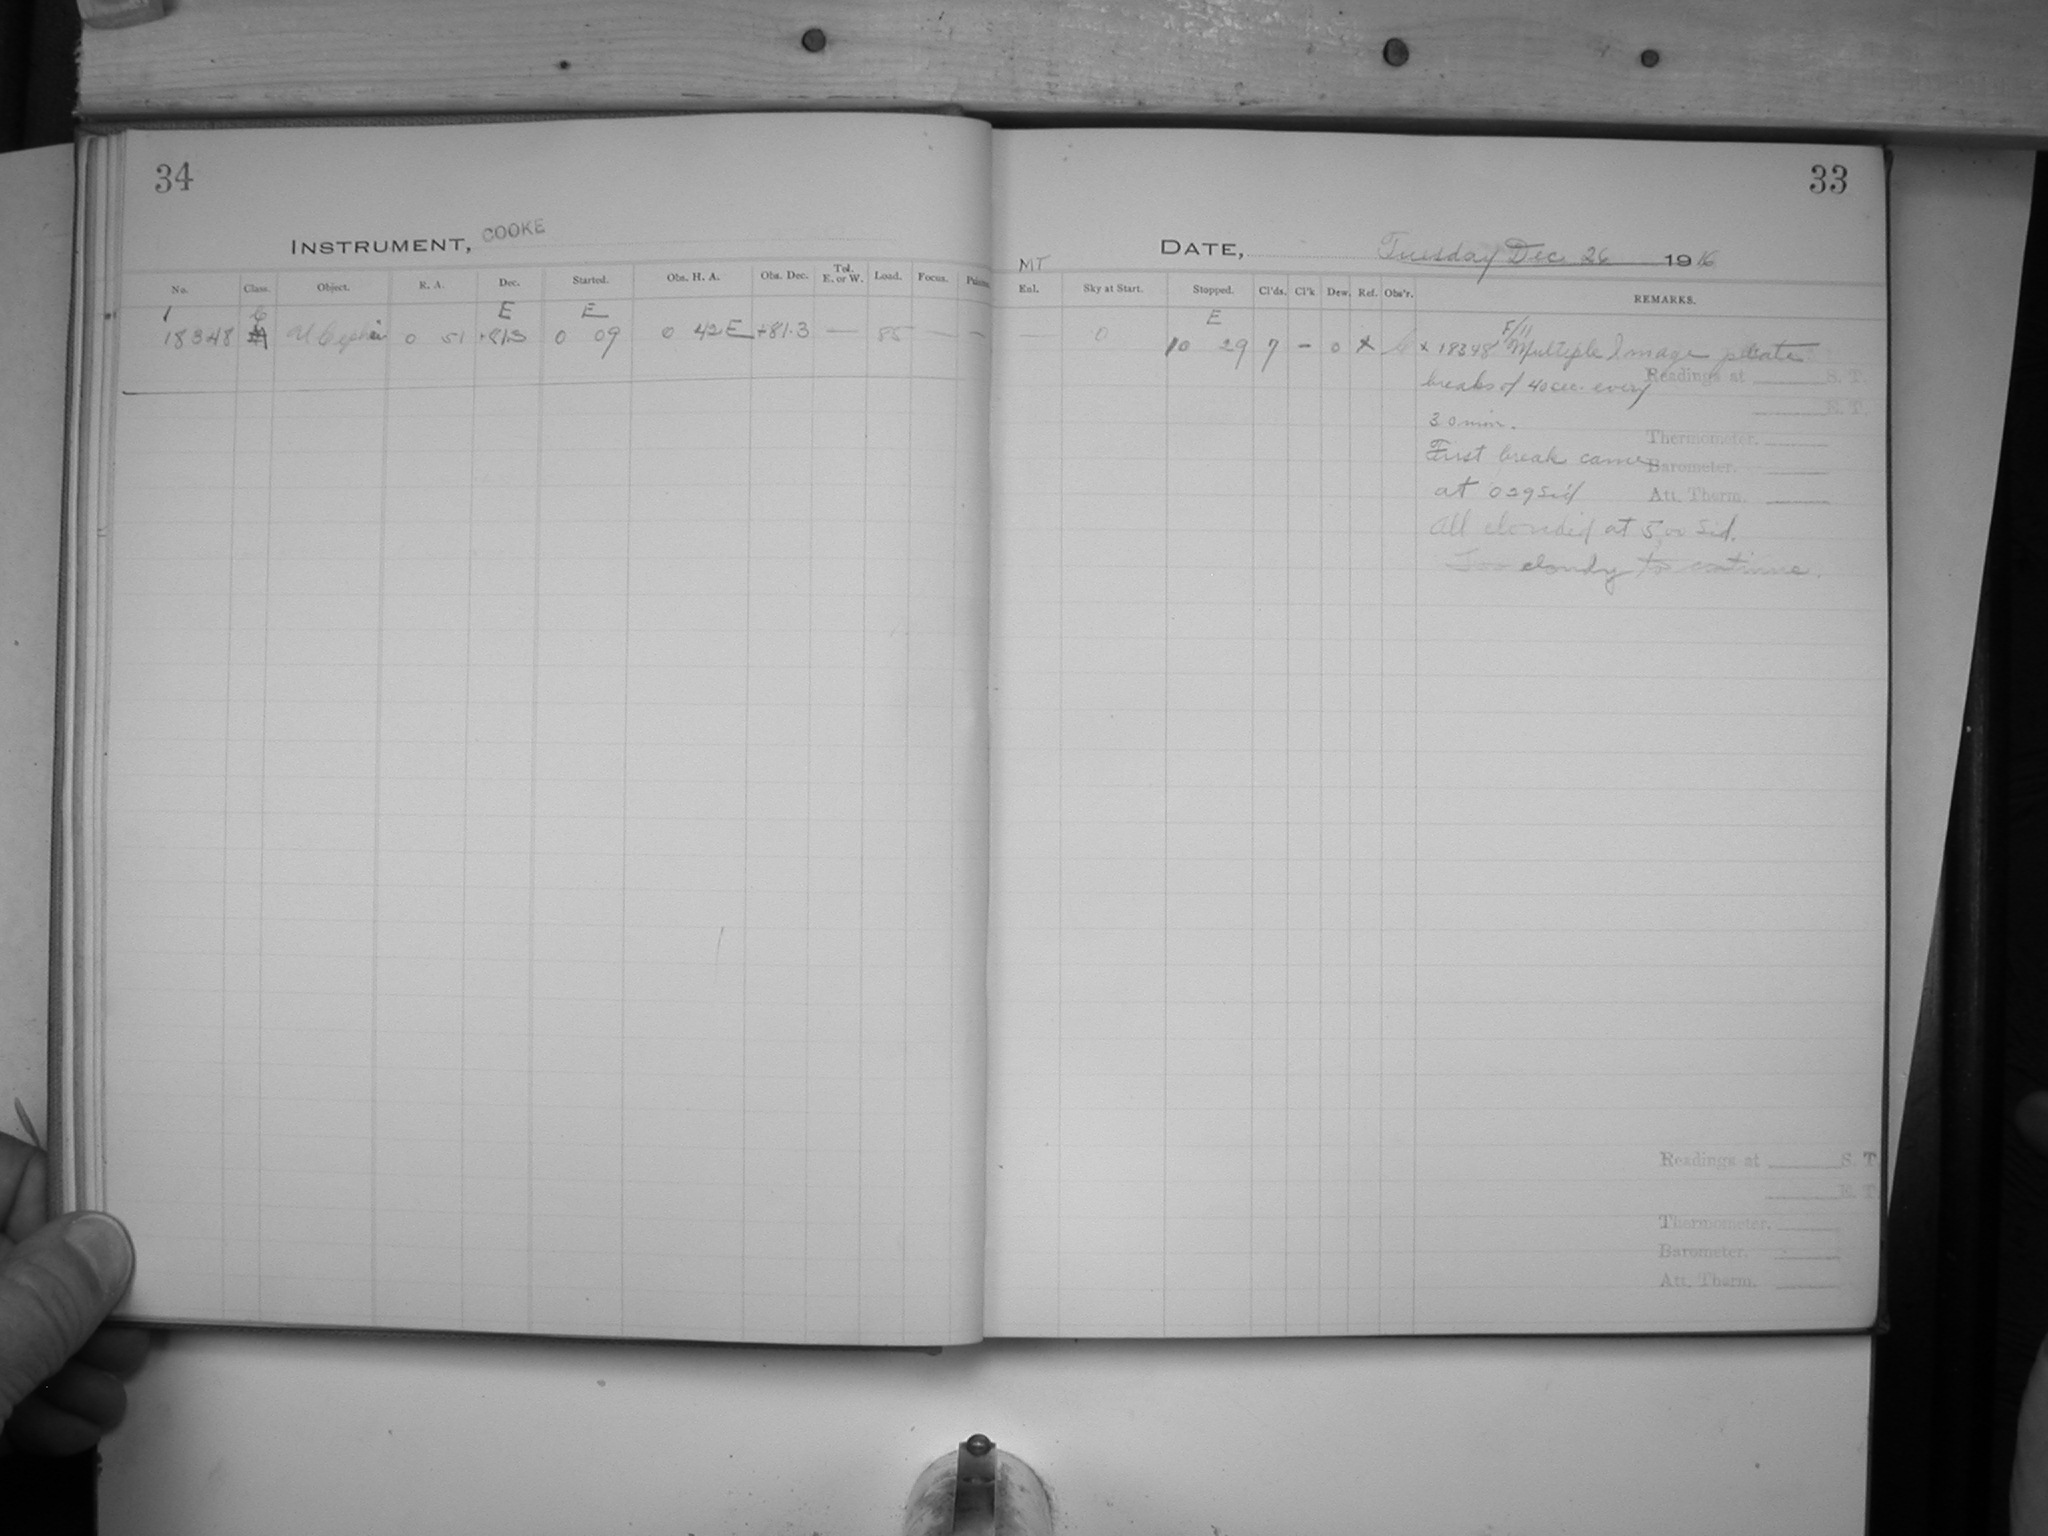 34
INSTRUMENT, COOKE
No. Class. Object. R. A. Dec. Started. Obs. H. A. Obs. Dec. Tel. E. or W. Load. Focus.
1 6 E E
18348 U Cephei 0 51 +81.3 0 09 0 42 E +81.3 — 85 — —
33
DATE, Tuesday Dec. 26 1916
MT
Enl. Sky at Start. Stopped. Cl'ds. Cl'k Dew. Ref. Obs'r. REMARKS.
E
— 0 10 29 7 – 0 x
F/11
x 18348 Multiple Image plate
breaks of 40 sec. every
30 min.
First break came
at 0 29 Sid
All clouded at 5,00 Sid.
Too cloudy to continue.
Readings at S. T.
Thermometer.
Barometer.
Att. Therm.
Readings at S. T.
Thermometer.
Barometer.
Att. Therm.